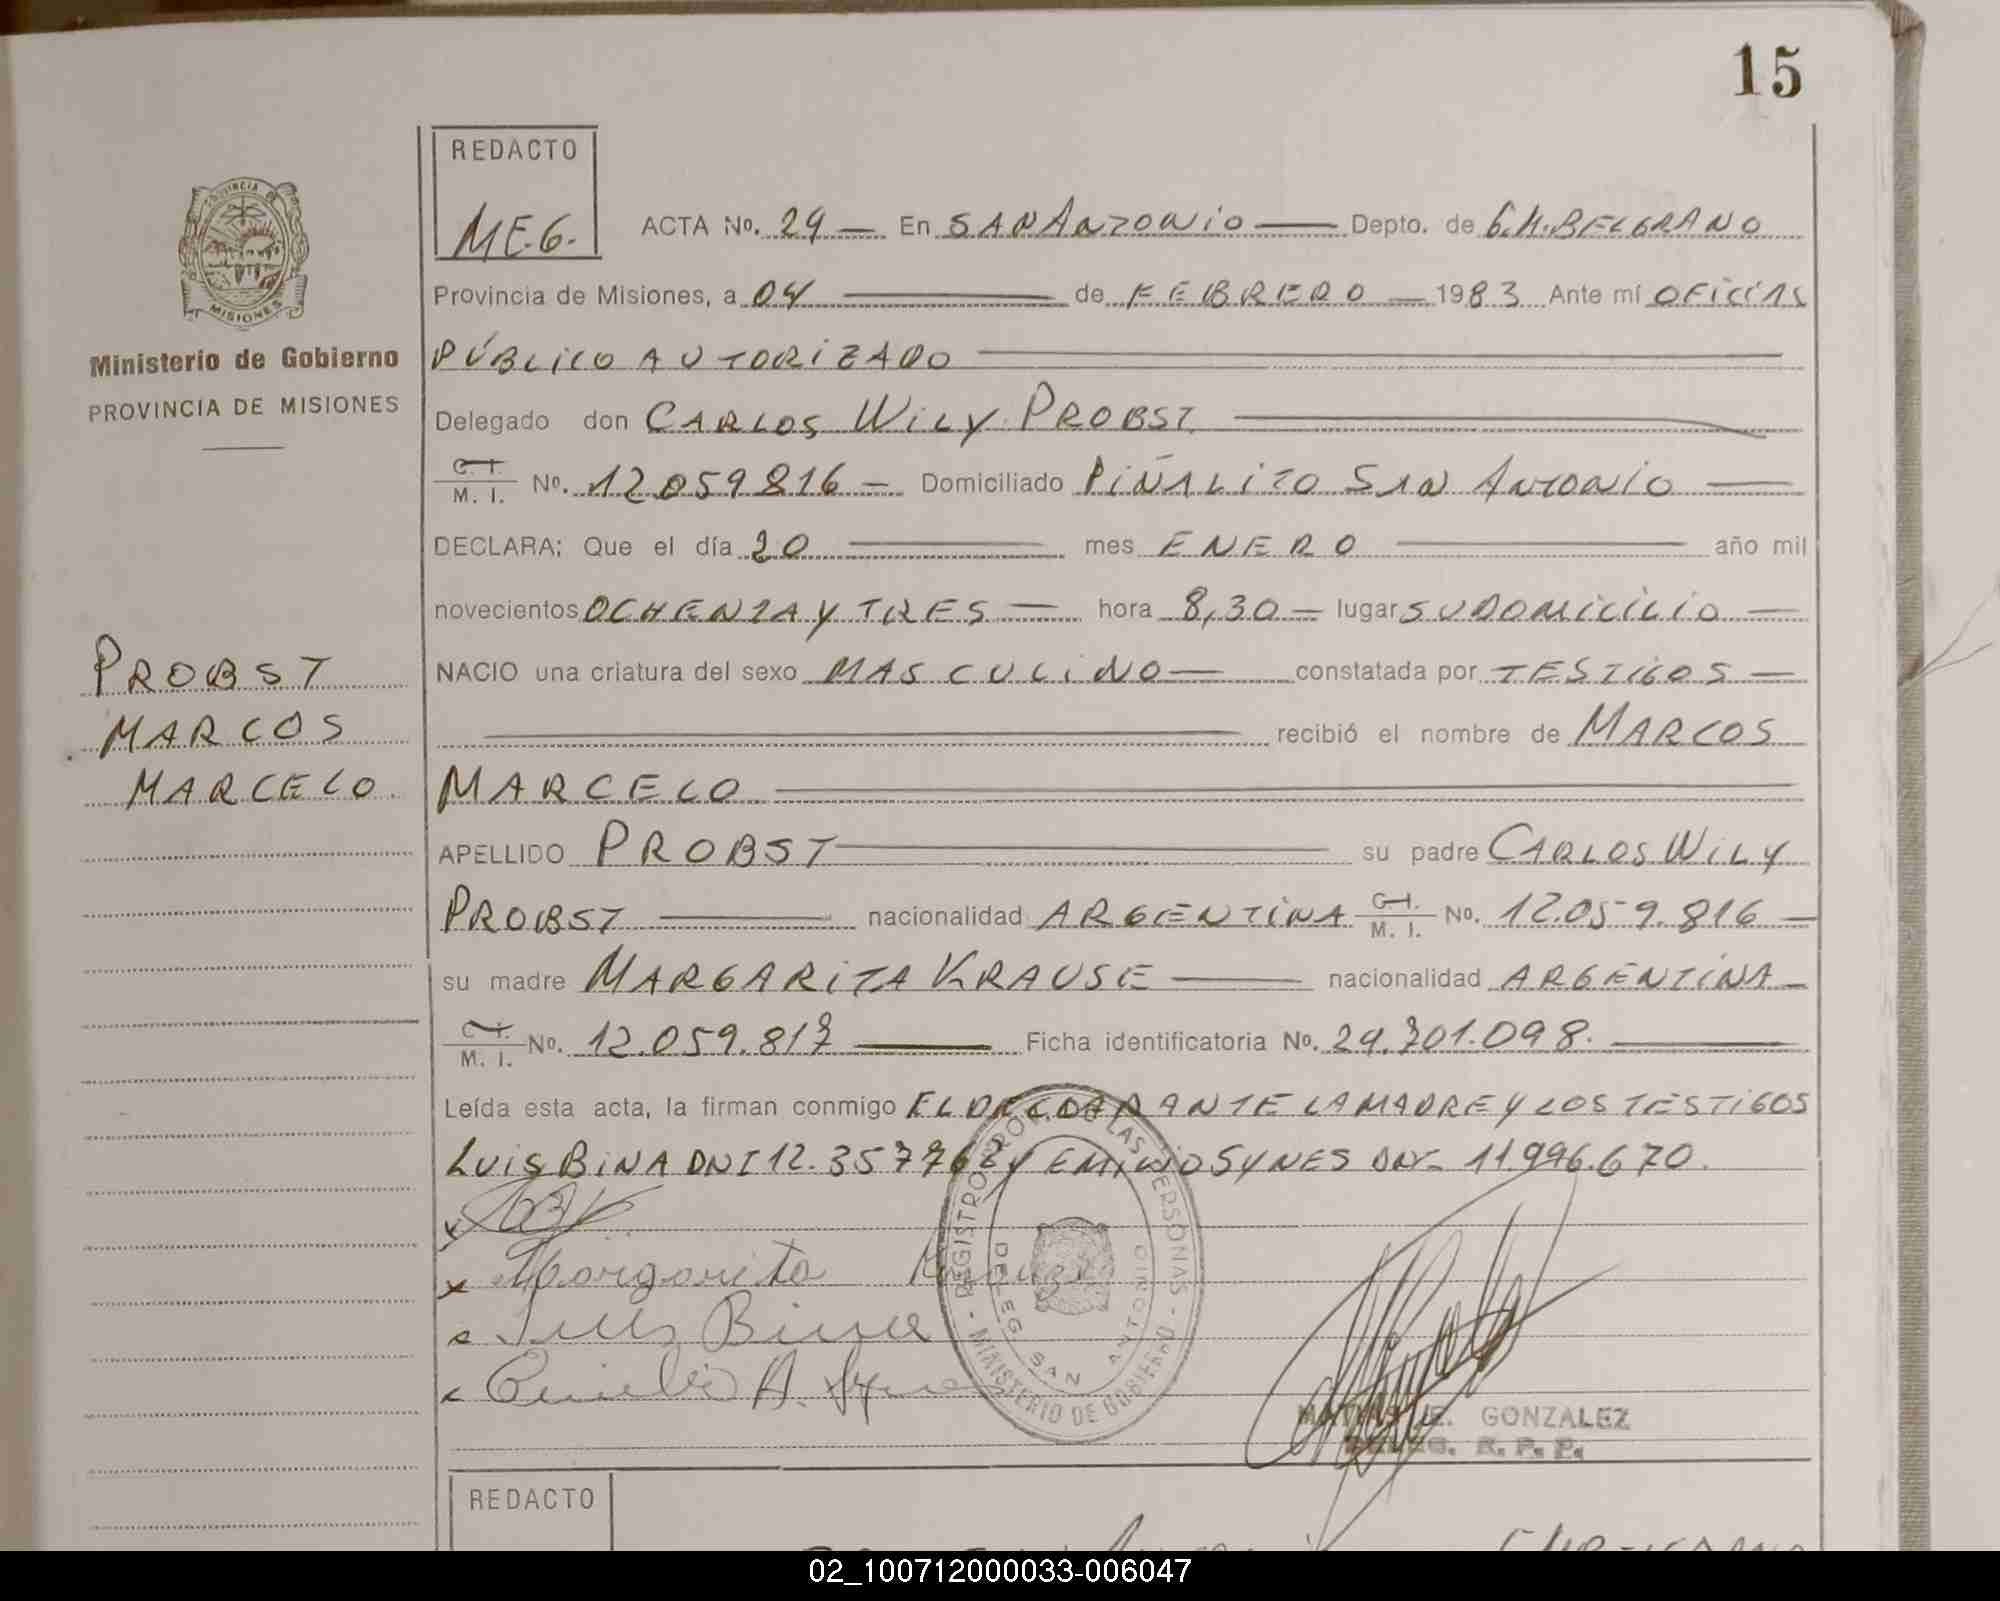 15
REDACTO
ME.G.
ACTA No. 29 — En SAN ANTONIO — Depto. de G.M.BELGRANO
Provincia de Misiones, a 04 — de FEBRERO — 1983 Ante mí OFICIAL
PÚBLICO AUTORIZADO
PROVINCIA DE
MISIONES
Ministerio de Gobierno
PROVINCIA DE MISIONES
Delegado don CARLOS WILY PROBST
C. I.
M. I. No. 12.059.816 — Domiciliado PIÑALITO SAN ANTONIO —
DECLARA: Que el día 20 — mes ENERO — año mil
novecientos OCHENTA Y TRES — hora 8,30 — lugar SU DOMICILIO —
PROBST
MARCOS
MARCELO
NACIO una criatura del sexo MASCULINO — constatada por TESTIGOS —
— recibió el nombre de MARCOS
MARCELO —
APELLIDO PROBST — su padre CARLOS WILY
PROBST — nacionalidad ARGENTINA C. I. M. I. No. 12.059.816 —
su madre MARGARITA KRAUSE — nacionalidad ARGENTINA —
C. I.
M. I. No. 12.059.817 — Ficha identificatoria No. 29.701.098. —
Leída esta acta, la firman conmigo EL DECLARANTE LA MADRE Y LOS TESTIGOS
LUIS BINA DNI 12.357.762 y EMILIO SYNES DNI- 11.996.670.
x
x Margarita Krause
x Luis Bina
x Emilio A. Synes
REGISTRO PROV. DE LAS PERSONAS - MINISTERIO DE GOBIERNO -
DELEG. SAN ANTONIO
MATIAS E. GONZALEZ
DELEG. R. P. P.
REDACTO
02_100712000033-006047